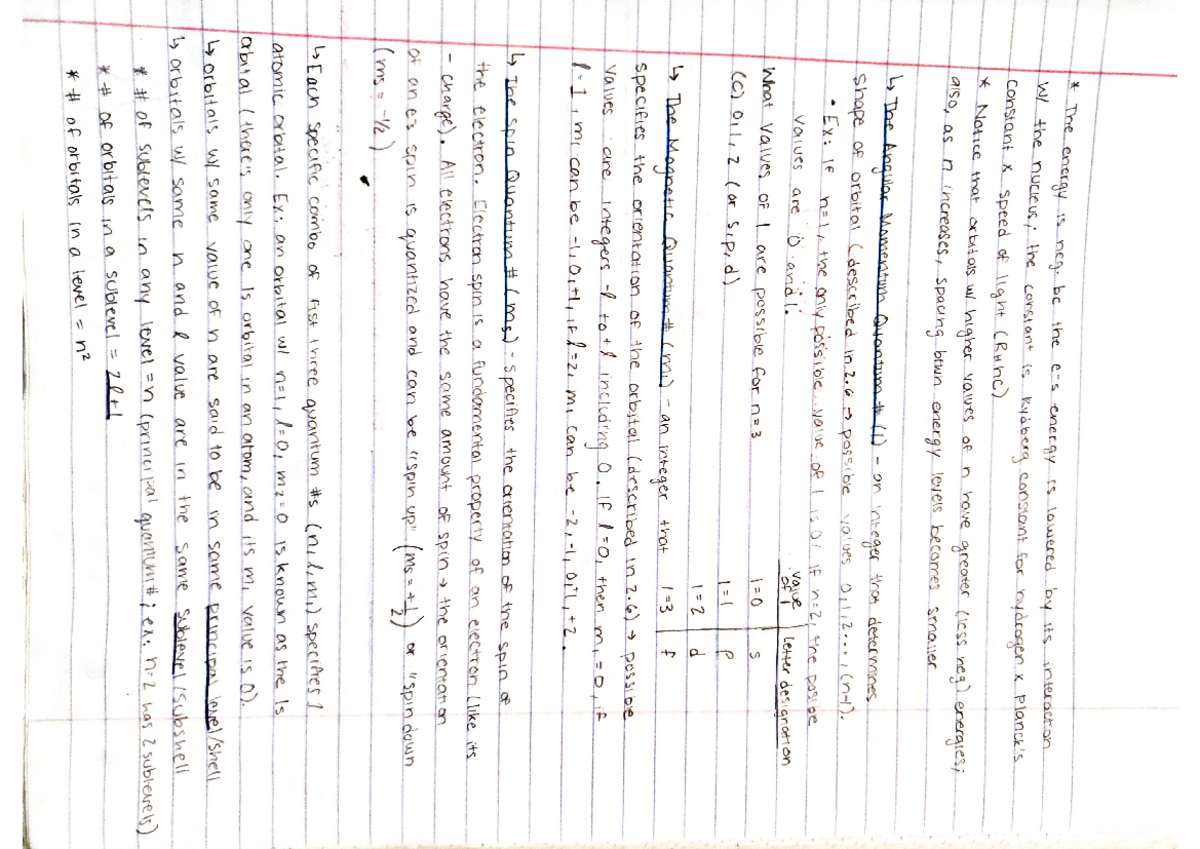 * The energy is neg. bc the e-'s energy is lowered by its interaction
w/ the nucleus; the constant is Rydberg constant for hydrogen x Planck's
constant x speed of light (RHhc)
* Notice that orbitals w/ higher values of n have greater (less neg.) energies;
also, as n increases, spacing btwn energy levels becomes smaller
↳ The Angular Momentum Quantum # (l) - an integer that determines
shape of orbital (described in 2.6 → possible values 0,1,2...,(n-1).
• Ex: If n=1, the only possible value of l is 0; if n=2, the posi be
values are 0 and 1.
What values of l are possible for n=3
(c) 0,1,2 (or s,p,d)
value of l | letter designation
l=0 | s
l=1 | p
l=2 | d
l=3 | f
↳ The Magnetic Quantum # (ml) - an integer that
specifies the orientation of the orbital (described in 2.6) → possible
values are integers -l to +l including 0. If l=0, then ml=0, if
l=1, ml can be -1,0,+1, if l=2, ml can be -2,-1,0,+1,+2.
↳ The Spin Quantum # (ms) - specifies the orientation of the spin of
the electron. Electron spin is a fundamental property of an electron (like its
- charge). All electrons have the same amount of spin → the orientation
of an e-'s spin is quantized and can be "spin up" (ms = +1/2) or "spin down
(ms = -1/2)
↳ Each specific combo of fist three quantum #s (n,l,ml) specifies 1
atomic orbital. Ex: an orbital w/ n=1, l=0, ml=0 is known as the 1s
orbital (there's only one 1s orbital in an atom, and its ml value is 0).
↳ orbitals w/ same value of n are said to be in same principal level/shell
↳ orbitals w/ same n and l value are in the same sublevel/subshell
* # of sublevels in any level = n (principal quantum #; ex. n=2 has 2 sublevels)
* # of orbitals in a sublevel = 2l+1
* # of orbitals in a level = n²